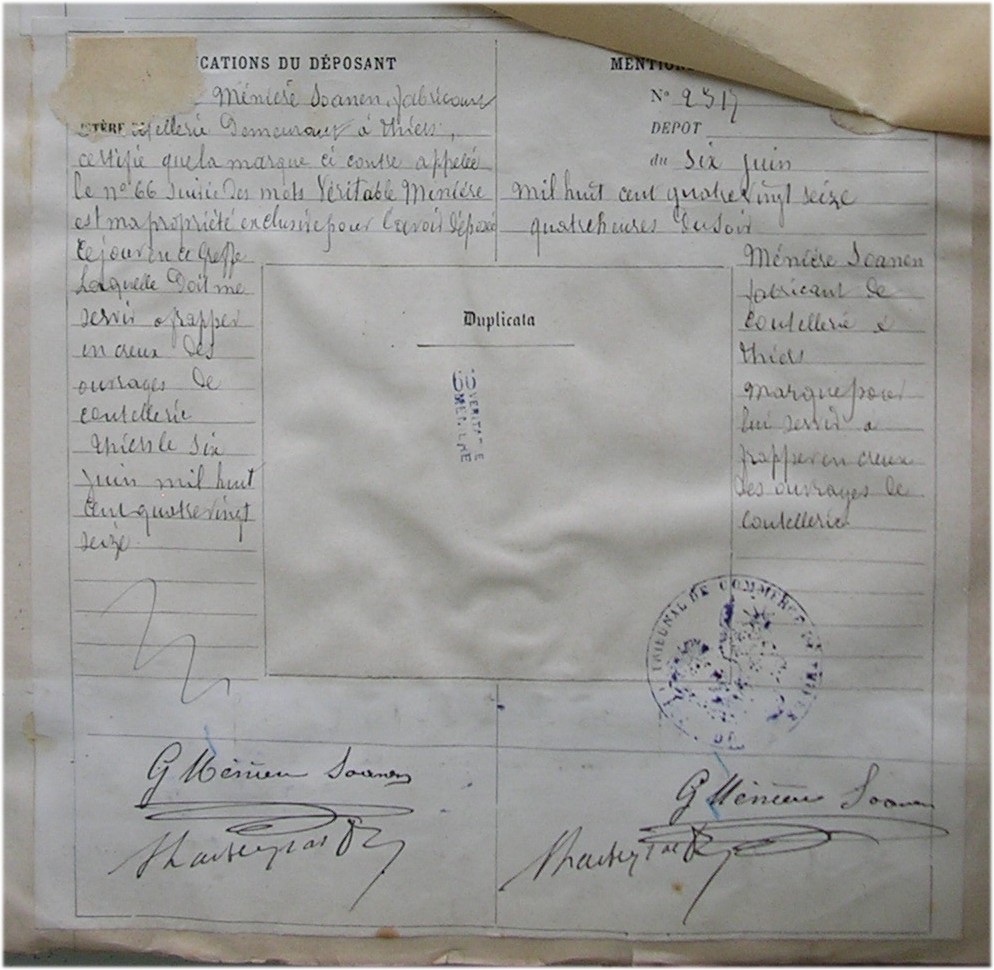 CATIONS DU DÉPOSANT
Ménière Soanen, fabricant
coutellerie Demeurant à Thiers,
certifie que la marque ci contre appelée
le n° 66 suivie des mots Véritable Menière
est ma propriété exclusive pour l'avoir déposé
ce jour en ce Greffe
Laquelle Doit me
servir a frapper
en creux des
ouvrages de
coutellerie
Thiers le Six
juin mil huit
cent quatre vingt
seize
MENTION
N° 2317
DEPOT
du Six juin
mil huit cent quatre vingt seize
quatre heures du soir
Ménière Soanen
fabricant de
coutellerie à
Thiers
Marque pour
lui servir à
frapper en creux
des ouvrages de
coutellerie
Duplicata
66 VERITABLE
MENIERE
TRIBUNAL DE COMMERCE DE THIERS
G Ménière Soanen
G Ménière Soanen